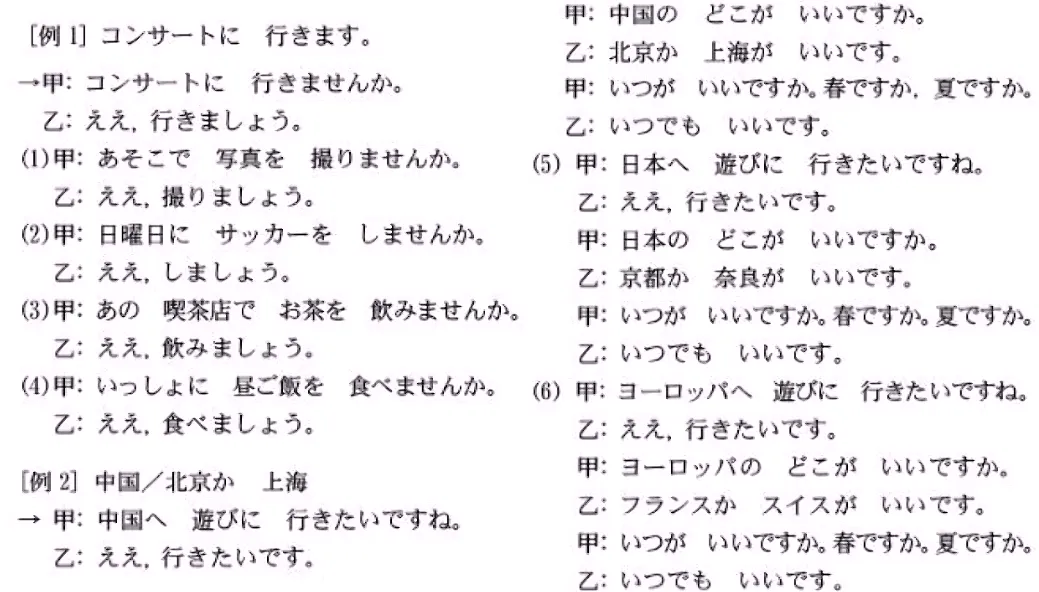 [例1] コンサートに 行きます。
→甲: コンサートに 行きませんか。
乙: ええ, 行きましょう。
(1)甲: あそこで 写真を 撮りませんか。
乙: ええ, 撮りましょう。
(2)甲: 日曜日に サッカーを しませんか。
乙: ええ, しましょう。
(3)甲: あの 喫茶店で お茶を 飲みませんか。
乙: ええ, 飲みましょう。
(4)甲: いっしょに 昼ご飯を 食べませんか。
乙: ええ, 食べましょう。
[例2] 中国/北京か 上海
→ 甲: 中国へ 遊びに 行きたいですね。
乙: ええ, 行きたいです。
甲: 中国の どこが いいですか。
乙: 北京か 上海が いいです。
甲: いつが いいですか。春ですか, 夏ですか。
乙: いつでも いいです。
(5) 甲: 日本へ 遊びに 行きたいですね。
乙: ええ, 行きたいです。
甲: 日本の どこが いいですか。
乙: 京都か 奈良が いいです。
甲: いつが いいですか。春ですか。夏ですか。
乙: いつでも いいです。
(6) 甲: ヨーロッパへ 遊びに 行きたいですね。
乙: ええ, 行きたいです。
甲: ヨーロッパの どこが いいですか。
乙: フランスか スイスが いいです。
甲: いつが いいですか。春ですか。夏ですか。
乙: いつでも いいです。